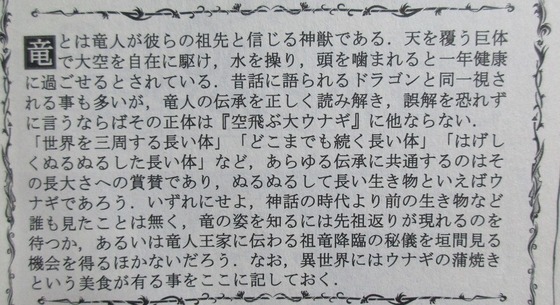 竜とは竜人が彼らの祖先と信じる神獣である．天を覆う巨体
で大空を自在に駆け，水を操り，頭を噛まれると一年健康
に過ごせるとされている．昔話に語られるドラゴンと同一視さ
れる事も多いが，竜人の伝承を正しく読み解き，誤解を恐れず
に言うならばその正体は『空飛ぶ大ウナギ』に他ならない．
「世界を三周する長い体」「どこまでも続く長い体」「はげし
くぬるぬるした長い体」など，あらゆる伝承に共通するのはそ
の長大さへの賞賛であり，ぬるぬるして長い生き物といえばウ
ナギであろう．いずれにせよ，神話の時代より前の生き物など
誰も見たことは無く，竜の姿を知るには先祖返りが現れるのを
待つか，あるいは竜人王家に伝わる祖竜降臨の秘儀を垣間見る
機会を得るほかないだろう．なお，異世界にはウナギの蒲焼き
という美食が有る事をここに記しておく．